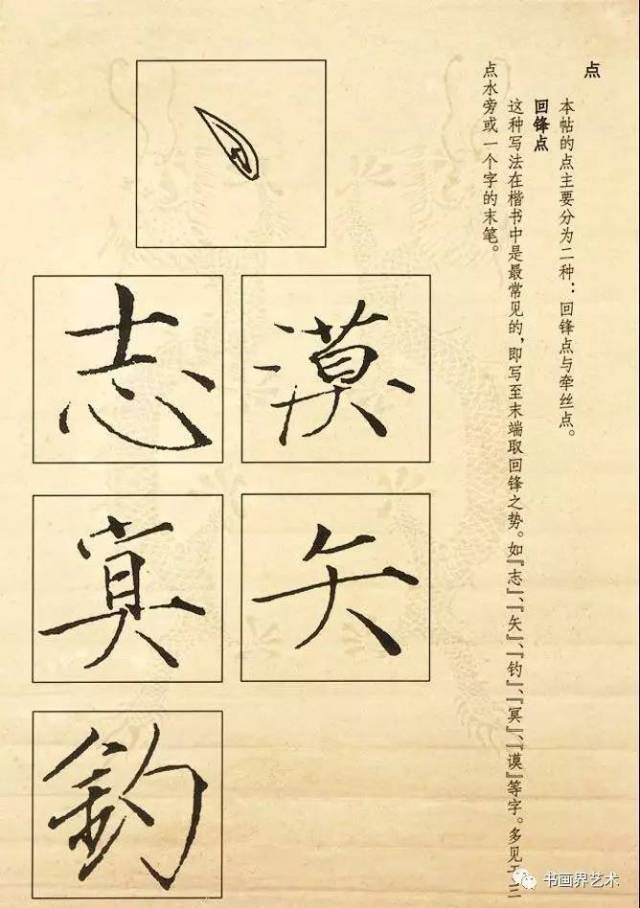 点
本帖的点主要分为二种：回锋点与牵丝点。
回锋点
这种写法在楷书中是最常见的，即写至末端取回锋之势。如『志』、『矢』、『钓』、『冥』、『谟』等字。多见于三
点水旁或一个字的末笔。
漠
志
矢
冥
釣
书画界艺术